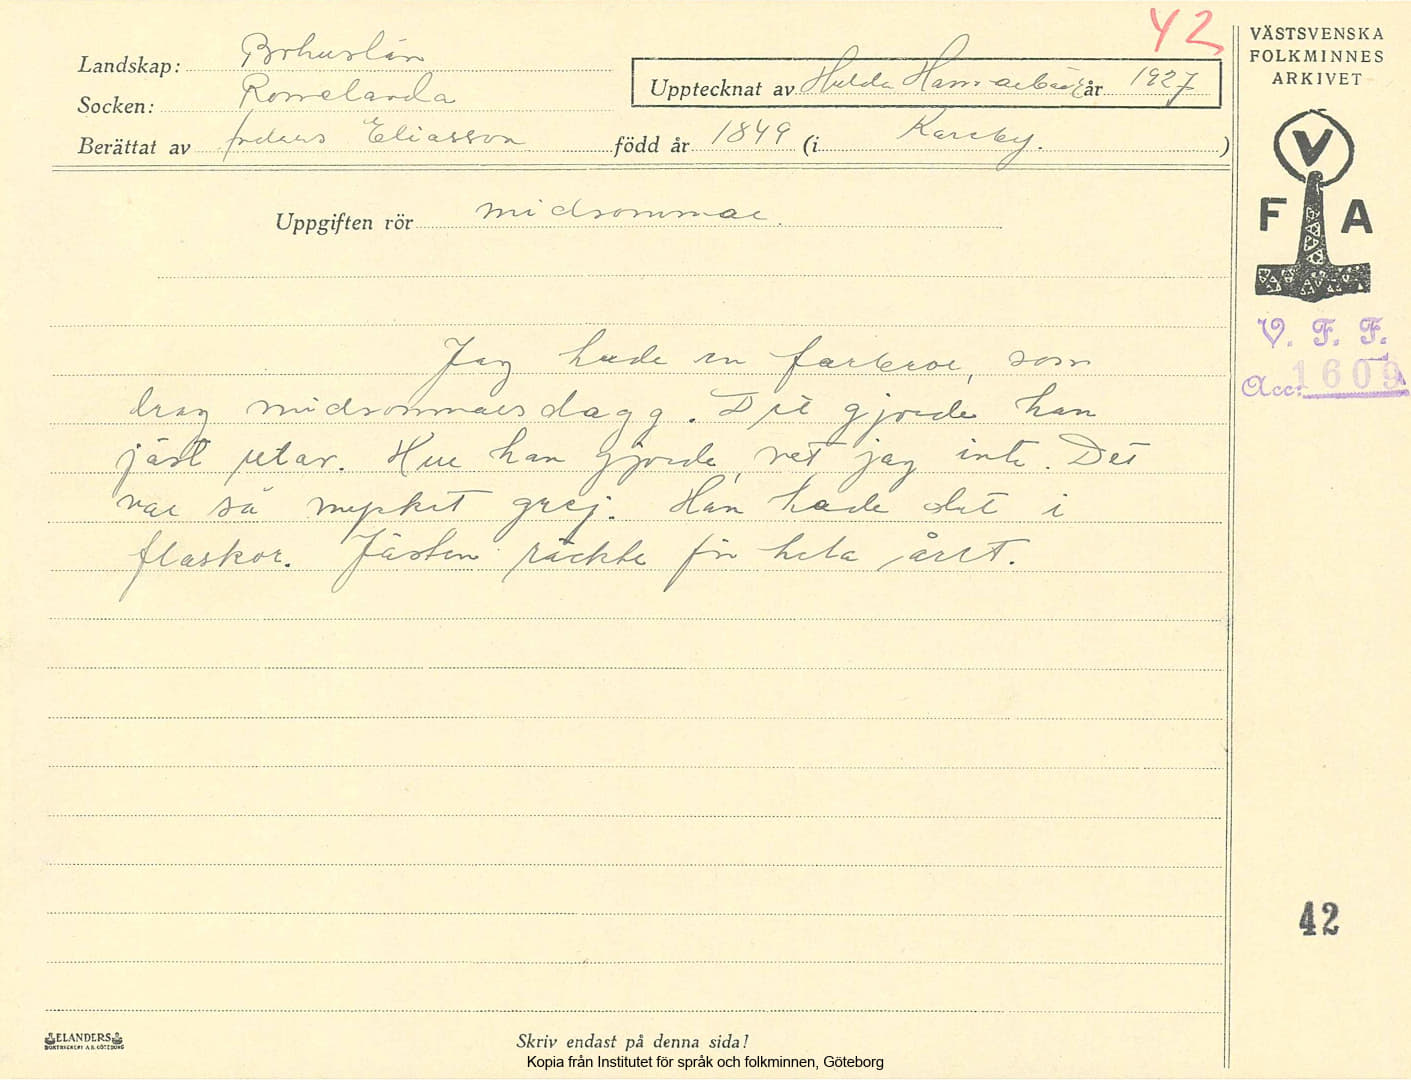 42
VÄSTSVENSKA
FOLKMINNES
ARKIVET
Landskap: Bohuslän
Socken: Romelanda
Upptecknat av Hulda Hammarbäck år 1927
Berättat av Anders Eliasson född år 1849 (i Kareby. )
V
F A
Uppgiften rör midsommar.
V. F. F.
Acc: 1609
Jag hade en farbror, som
drog midsommarsdagg. Det gjorde han
jäst utav. Hur han gjorde, vet jag inte. Det
var så mycket grej. Han hade det i
flaskor. Jästen räckte för hela året.
42
ELANDERS
BOKTRYCKERI A.B. GÖTEBORG
Skriv endast på denna sida!
Kopia från Institutet för språk och folkminnen, Göteborg